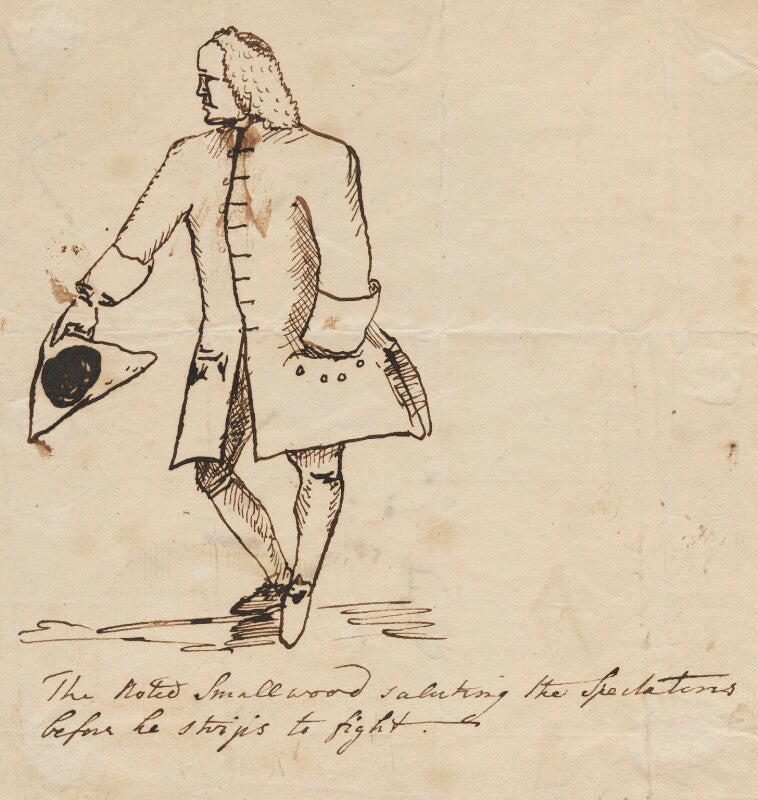 The Noted Smallwood saluting the Spectators
before he strips to fight.